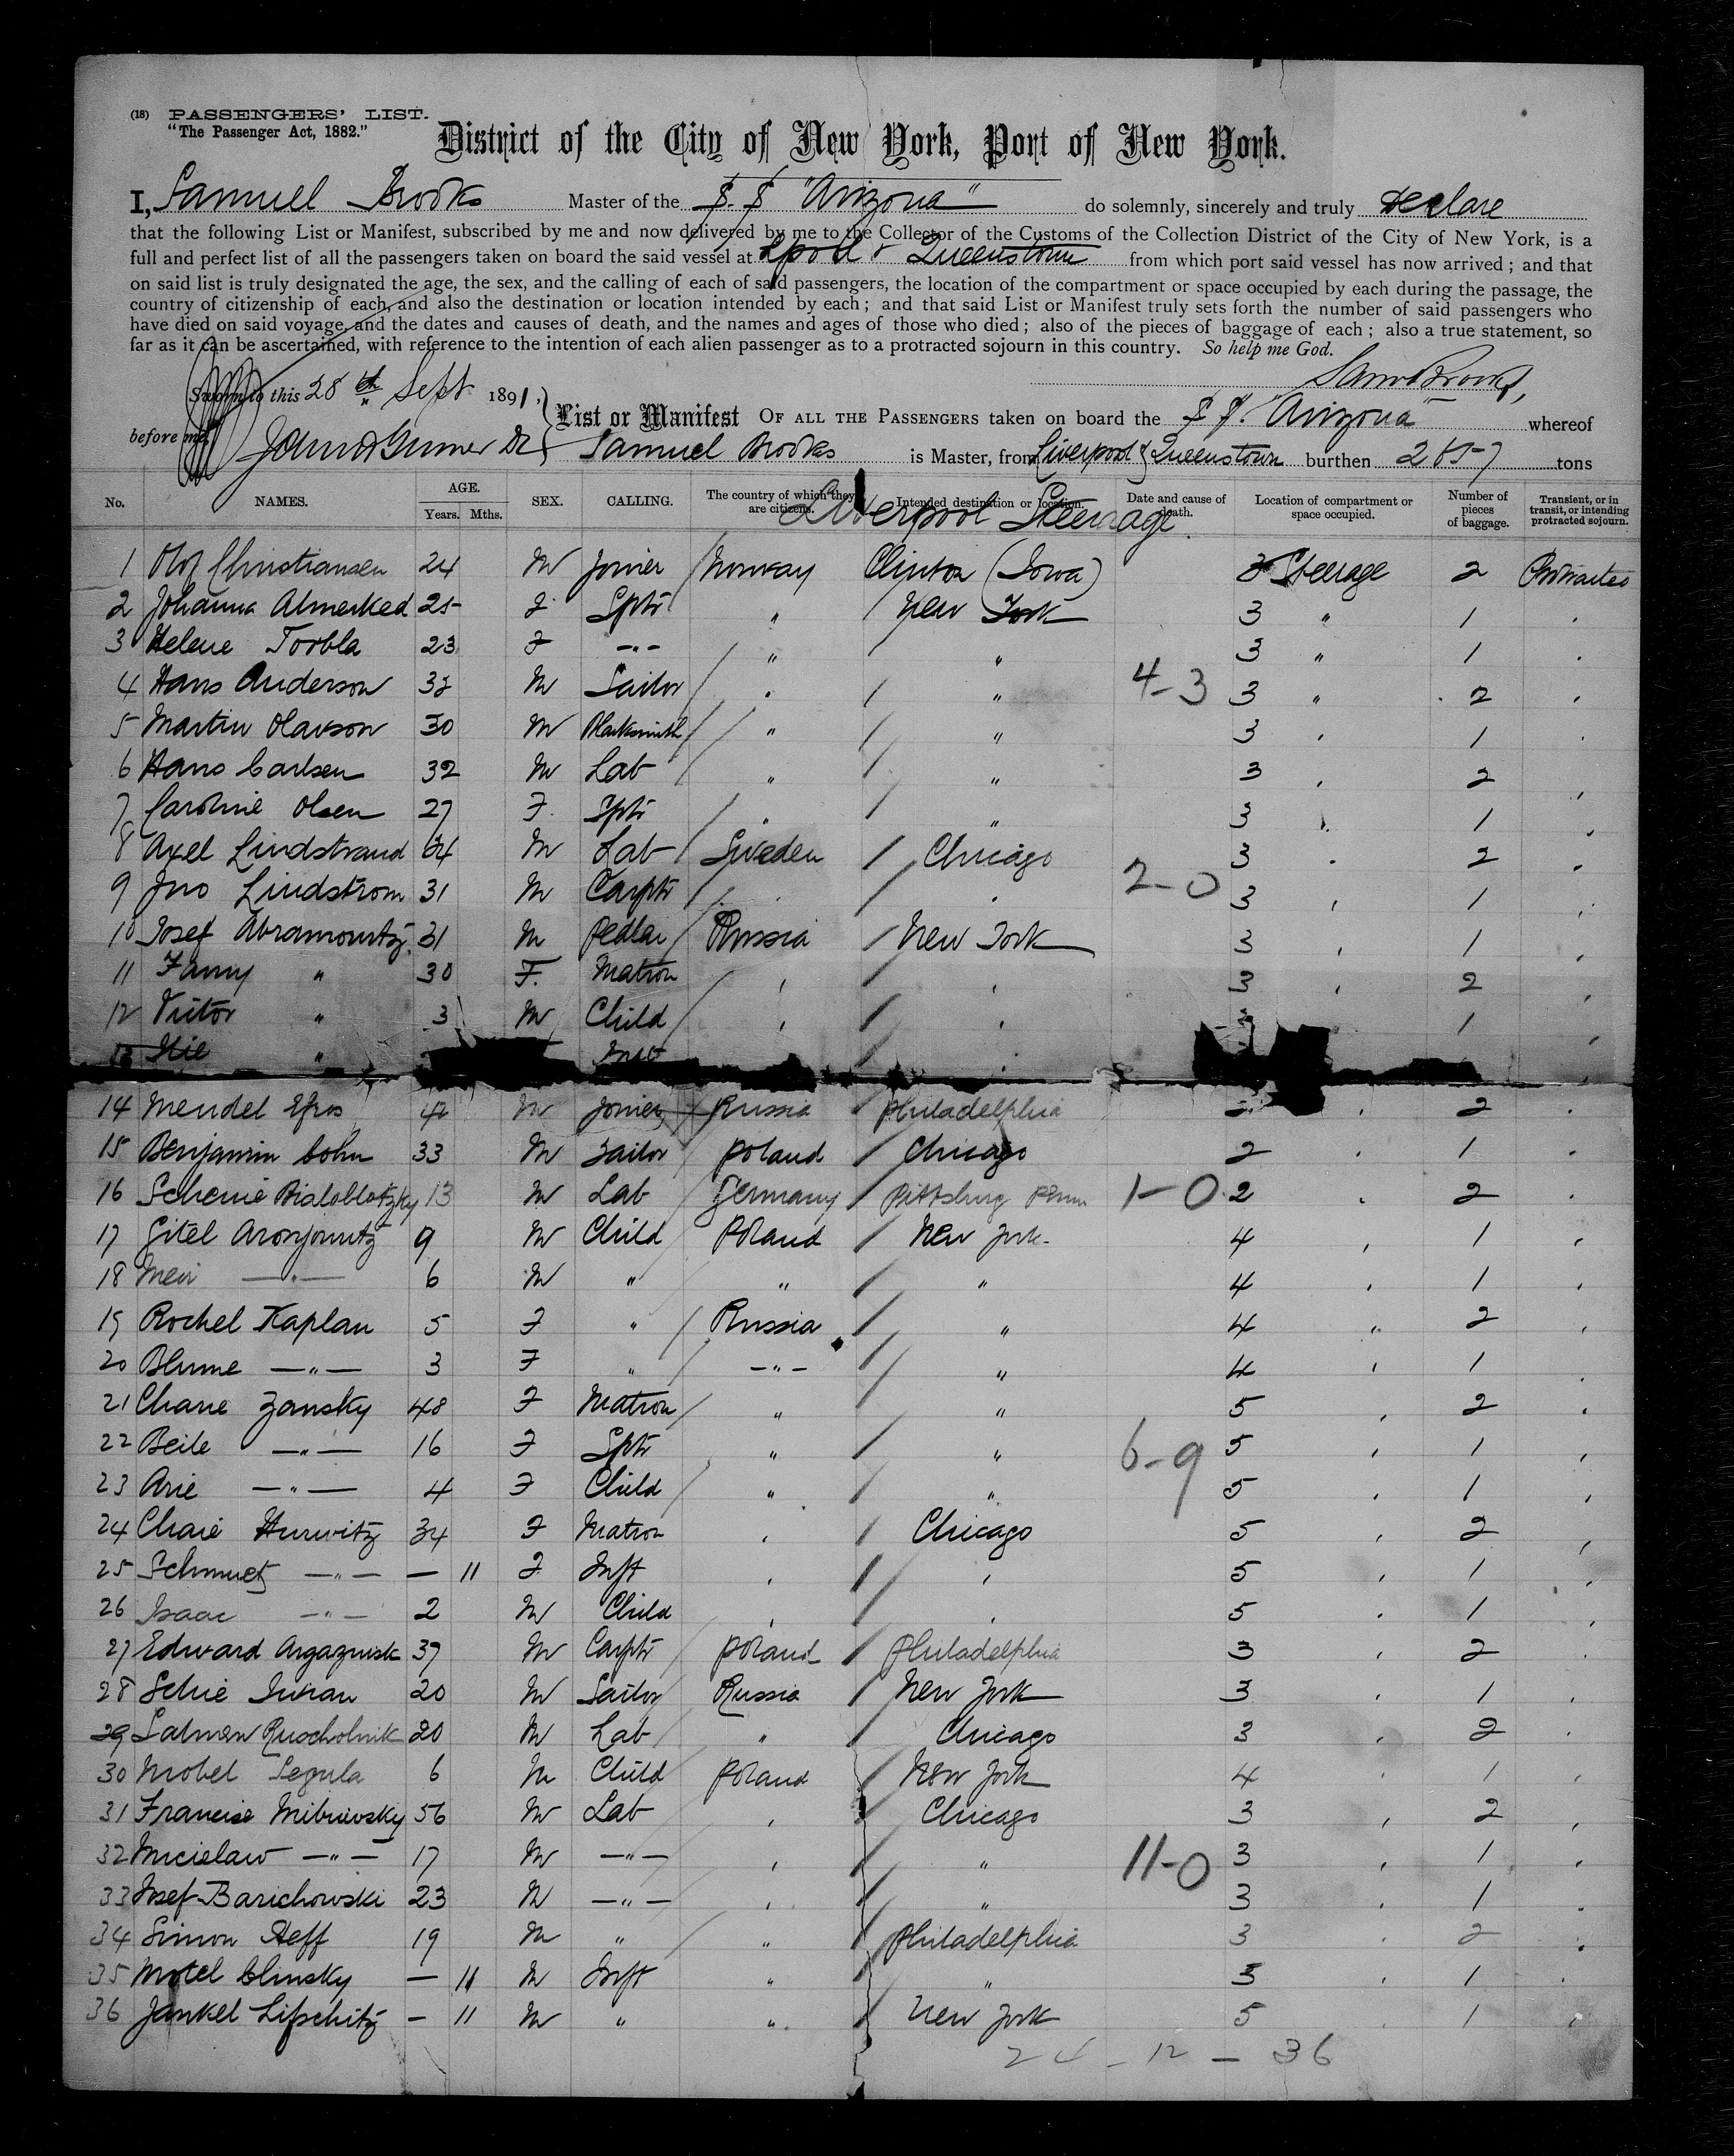 (18) PASSENGERS' LIST.
"The Passenger Act, 1882."
District of the City of New York, Port of New York.
I, Samuel Brooks Master of the S. S "Arizona" do solemnly, sincerely and truly Declare
that the following List or Manifest, subscribed by me and now delivered by me to the Collector of the Customs of the Collection District of the City of New York, is a
full and perfect list of all the passengers taken on board the said vessel at Lpool & Queenstown from which port said vessel has now arrived; and that
on said list is truly designated the age, the sex, and the calling of each of said passengers, the location of the compartment or space occupied by each during the passage, the
country of citizenship of each, and also the destination or location intended by each; and that said List or Manifest truly sets forth the number of said passengers who
have died on said voyage, and the dates and causes of death, and the names and ages of those who died; also of the pieces of baggage of each; also a true statement, so
far as it can be ascertained, with reference to the intention of each alien passenger as to a protracted sojourn in this country. So help me God.
Saml Brooks,
Sworn to this 28th Sept 1891,
before me,
List or Manifest OF ALL THE PASSENGERS taken on board the S S. Arizona whereof
Samuel Brooks is Master, from Liverpool & Queenstown burthen tons
No. NAMES. AGE. Years. Mths. SEX. CALLING. The country of which they are citizens. Intended destination or location. Date and cause of death. Location of compartment or space occupied. Number of pieces of baggage. Transient, or in transit, or intending protracted sojourn.
Liverpool Steerage
1 Olof Christiansen 24 M Joiner Norway Clinton (Iowa) 3 Steerage 2 Protracted
2 Johanna 25 F Sptr " New York 3 " 1
3 Helene Torbla 23 F -"- " " 3 " 1
4 Hans Anderson 32 M Sailor " " 4-3 3 " 2
5 Martin Olavson 30 M Blacksmith " " 3 " 1
6 Hans Carlsen 32 M Lab " " 3 " 2
7 Caroline Olsen 27 F. Sptr " " 3 " 1
8 Axel Lindstrand 34 M Lab Sweden Chicago 3 " 2
9 Jno Lindstrom 31 M Carptr " " 2-0 3 " 1
10 Josef Abramowitz 31 M Pedlar Russia New York 3 " 1
11 Fanny " 30 F. Matron " " 3 " 2
12 Victor " 3 M Child " " 1
13 " Inft
14 Mendel Efros M Joiner Russia Philadelphia 2
15 Benjamin Cohn 33 M Tailor Poland Chicago 2 " 1
16 Bialoblotzky 13 M Lab Germany Pittsburg Penn 1-0 2 " 2
17 Gitel 9 M Child Poland New York 4 " 1
18 Meir -"- 6 M " " " 4 " 1
19 Rochel Kaplan 5 F " Russia " 4 " 2
20 Blume -"- 3 F " -"- " 4 " 1
21 Chane Zansky 48 F Matron " " 5 " 2
22 Beile -"- 16 F Sptr " " 6-9 5 " 1
23 Arie -"- 4 F Child " " 5 " 1
24 Chaie Hurwitz 34 F Matron " Chicago 5 " 2
25 -"- - 11 F Inft " " 5 " 1
26 Isaac -"- 2 M Child " " 5 " 1
27 Edward 37 M Carptr Poland Philadelphia 3 " 2
28 Schie 20 M Russia New York 3 " 1
29 Salmen 20 M Lab " Chicago 3 " 2
30 Segula 6 M Child Poland New York 4 " 1
31 56 M Lab " Chicago 3 " 2
32 -"- 17 M -"- " " 11-0 3 " 1
33 Josef Barichowski 23 M -"- " " 3 " 1
34 Simon Steff 19 M " " Philadelphia 3 " 2
35 Motel Clinsky - 11 M Inft " " 5 " 1
36 Jankel Lifschitz - 11 M " " New York 5 " 1
24 - 12 - 36